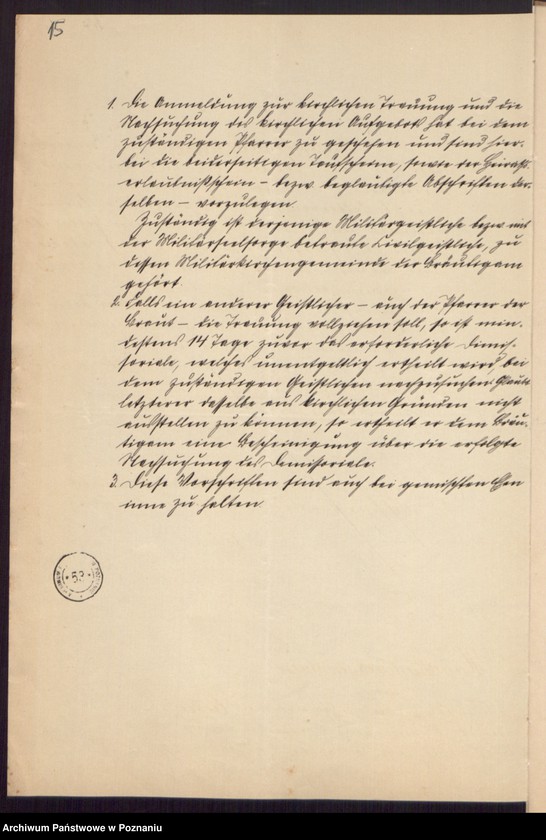 15
1. Die Anmeldung zur kirchlichen Trauung und die
Nachsuchung des kirchlichen Aufgebots hat bei dem
zuständigen Pfarrer zu geschehen und sind hier-
bei die beiderseitigen Taufscheine, sowie der Heiraths-
erlaubnißschein – bezw. beglaubigte Abschriften der-
selben – vorzulegen
Zuständig ist derjenige Militärgeistliche bezw. mit
der Militärseelsorge betraute Civilgeistliche, zu
dessen Militärkirchengemeinde der Bräutigam
gehört.
2. Falls ein anderer Geistlicher – auch der Pfarrer der
Braut – die Trauung vollziehen soll, so ist min-
destens 14 Tage zuvor das erforderliche Dimis-
soriale, welches unentgeltlich ertheilt wird, bei
dem zuständigen Geistlichen nachzusuchen. Glaubt
letzterer dasselbe aus kirchlichen Gründen nicht
ausstellen zu können, so ertheilt er dem Bräu-
tigam eine Bescheinigung über die erfolgte
Nachsuchung des Dimissoriale.
3. Diese Vorschriften sind auch bei gemischten Ehen
inne zu halten
53
Archiwum Państwowe w Poznaniu